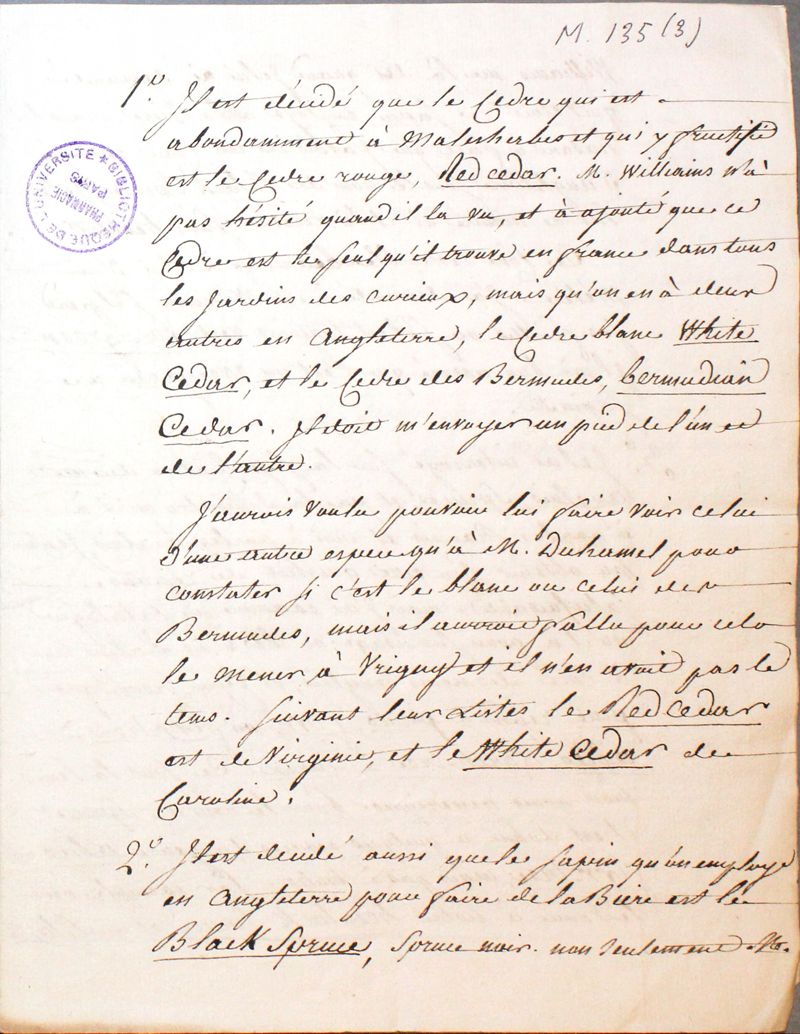 M. 135 (3)
BIBLIOTHEQUE DE L'UNIVERSITE
PHARMACIE
PARIS
1.° Il est décidé que le Cedre qui est
abondamment à Malesherbes et qui y fructifie
est le Cedre rouge, Red cedar. M. Williams n'a
pas hésité quand il l'a vu, et à ajouté que ce
Cedre est le seul qu'il trouve en france dans tous
les Jardins des curieux, mais qu'on en à deux
autres en Angleterre, le Cedre blanc White
Cedar, et le Cedre des Bermudes, bermudian
Cedar. Il doit m'envoyer un pied de l'un et
de l'autre.
J'aurois voulu pouvoir lui faire voir celui
d'une autre espece qu'à M. Duhamel pour
constater si c'est le blanc ou celui des
Bermudes, mais il auroit fallu pour cela
le mener à Vrigny et il n'en avoit pas le
tems. Suivant leur Listes le Red cedar
est de Virginie, et le White cedar de
Caroline.
2.° Il est décidé aussi que le sapin qu'on employe
en Angleterre pour faire de la Biere est le
Black Spruce, Spruce noir. non seulement M.